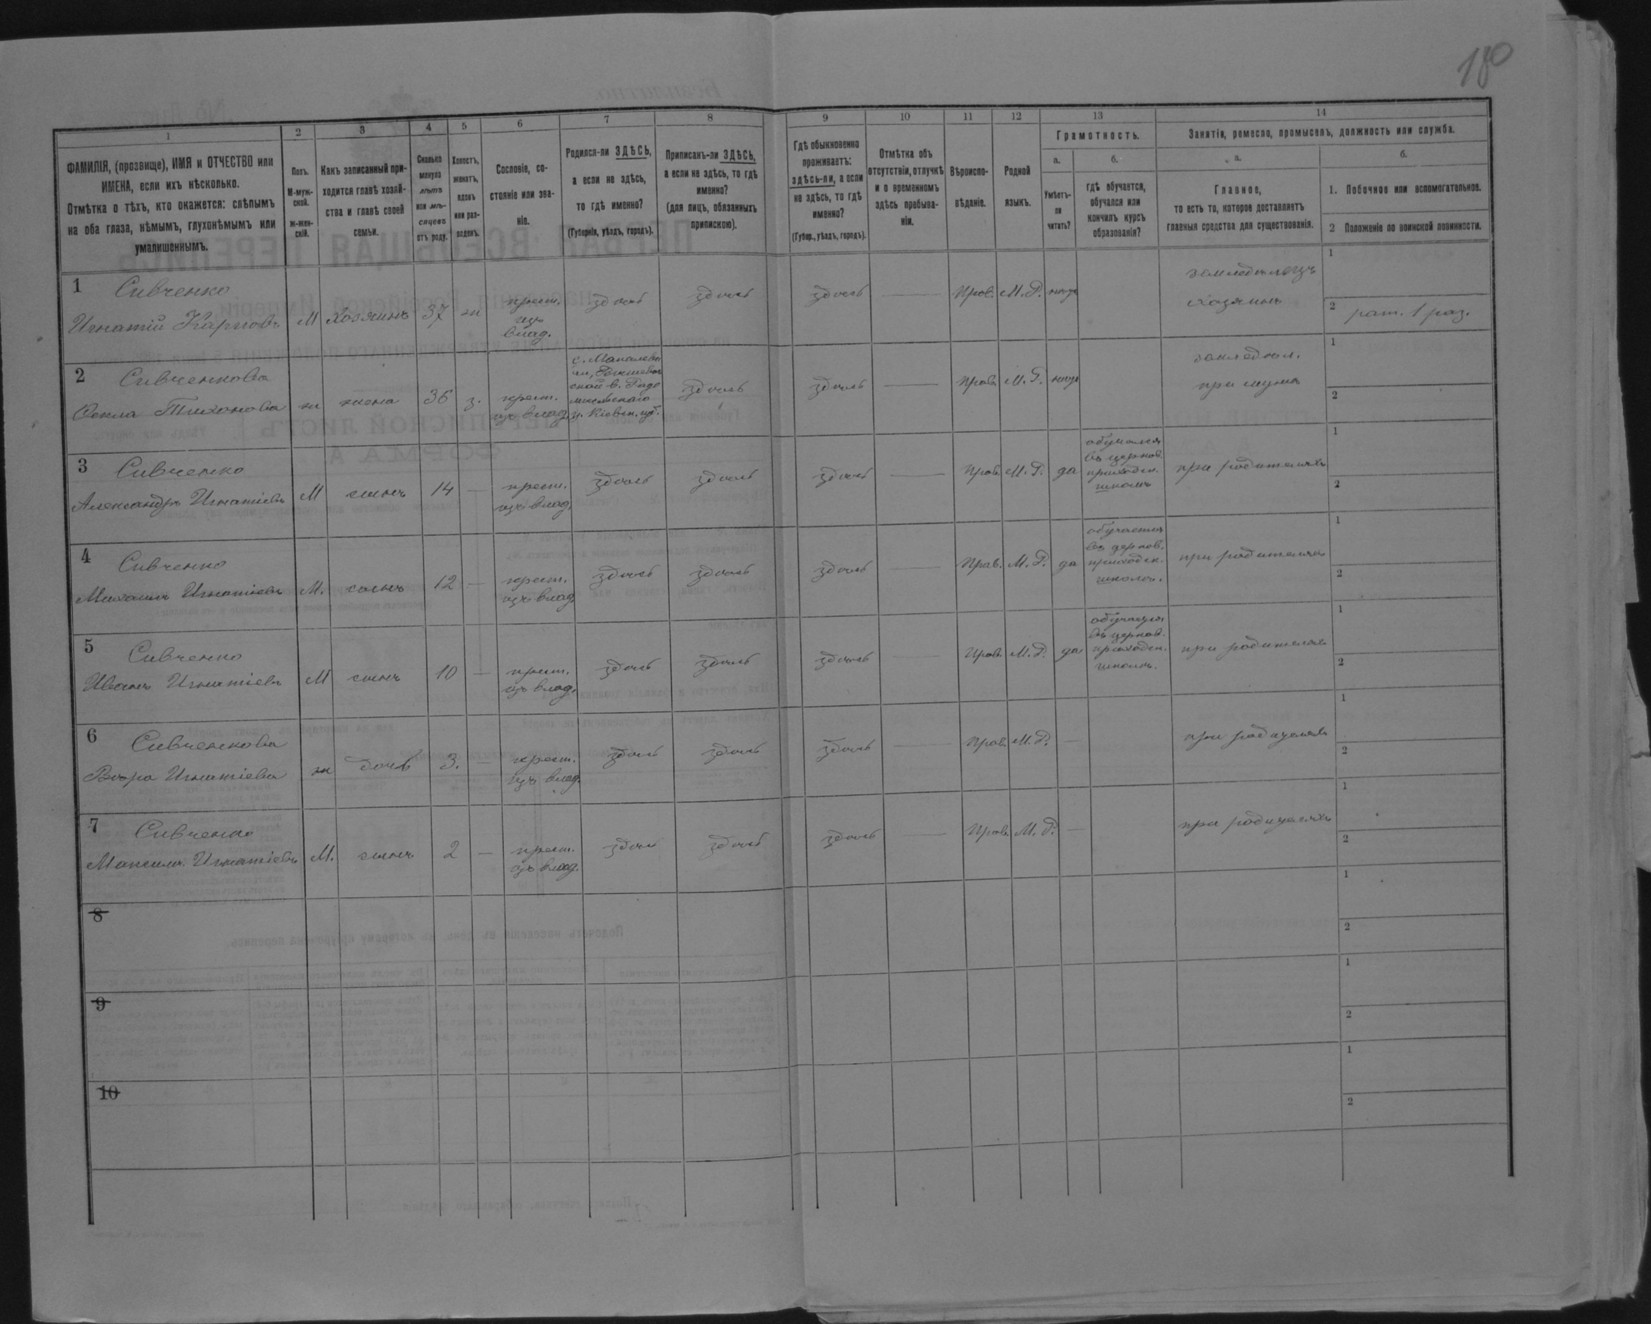 180
1
2
3
4
5
6
7
8
9
10
11
12
13
14
ФАМИЛІЯ, (прозвище), ИМЯ и ОТЧЕСТВО или
ИМЕНА, если ихъ нѣсколько.
Отмѣтка о тѣхъ, кто окажется: слѣпымъ
на оба глаза, нѣмымъ, глухонѣмымъ или
умалишеннымъ.
Полъ.
М-муж-
ской.
Ж-жен-
скій.
Какъ записанный при-
ходится главѣ хозяй-
ства и главѣ своей
семьи.
Сколько
минуло
лѣтъ
или мѣ-
сяцевъ
отъ роду.
Холостъ,
женатъ,
вдовъ
или раз-
веденъ.
Сословіе, со-
стояніе или зва-
ніе.
Родился-ли ЗДѢСЬ,
а если не здѣсь,
то гдѣ именно?
(Губернія, уѣздъ, городъ).
Приписанъ-ли ЗДѢСЬ,
а если не здѣсь, то гдѣ
именно?
(для лицъ, обязанныхъ
припискою).
Гдѣ обыкновенно
проживаетъ:
здѣсь-ли, а если
не здѣсь, то гдѣ
именно?
(Губер., уѣздъ, городъ).
Отмѣтка объ
отсутствіи, отлучкѣ
и о временномъ
здѣсь пребыва-
ніи.
Вѣроиспо-
вѣданіе.
Родной
языкъ.
Грамотность.
а.
Умѣетъ-
ли
читать?
б.
гдѣ обучается,
обучался или
кончилъ курсъ
образованія?
Занятіе, ремесло, промыселъ, должность или служба.
а.
Главное,
то есть то, которое доставляетъ
главныя средства для существованія.
б.
1. Побочное или вспомогательное.
2 Положеніе по воинской повинности.
1 Сивченко
Игнатій Карповъ М Хозяинъ 37 ж крест. изъ влад. здѣсь здѣсь здѣсь — Прав. М.Р. нѣтъ земледѣлецъ хозяинъ 1
2 рат. 1 раз.
2 Сивченкова
Ѳекла Тихонова ж жена 36 з. крест. изъ влад. здѣсь здѣсь — Прав. М.Р. нѣтъ земледѣл. при мужѣ 1
2
3 Сивченко
Александръ Игнатіевъ М сынъ 14 — крест. изъ влад. здѣсь здѣсь здѣсь — Прав. М.Р. да обучался въ церков. приходск. школѣ при родителяхъ 1
2
4 Сивченко
Михаилъ Игнатіевъ М. сынъ 12 — крест. изъ влад. здѣсь здѣсь здѣсь — Прав. М.Р. да обучается въ церков. приходск. школѣ. при родителяхъ 1
2
5 Сивченко
Иванъ Игнатіевъ М сынъ 10 — крест. изъ влад. здѣсь здѣсь здѣсь — Прав. М.Р. да обучается въ церков. приходск. школѣ. при родителяхъ 1
2
6 Сивченкова
Вѣра Игнатіева ж дочь 3. — крест. изъ влад. здѣсь здѣсь здѣсь — Прав. М.Р. — при родителяхъ 1
2
7 Сивченко
Максимъ Игнатіевъ М. сынъ 2 — крест. изъ влад. здѣсь здѣсь здѣсь — Прав. М.Р. — при родителяхъ 1
2
8
1
2
9
1
2
10
1
2